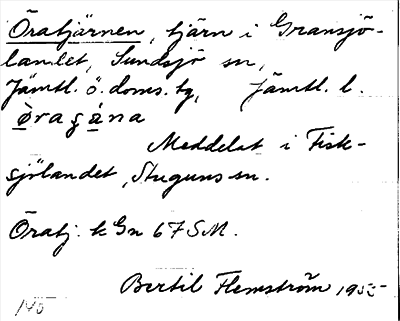 Öratjärnen, tjärn i Gransjö-
landet, Sundsjö sn,
Jämtl. ö. doms. tg, Jämtl. l.
ǫ̀raʂą̀na
Meddelat i Fisk-
sjölandet, Stuguns sn.
Öratj. k Gn 67 SM.
Bertil Flemström 1955
140